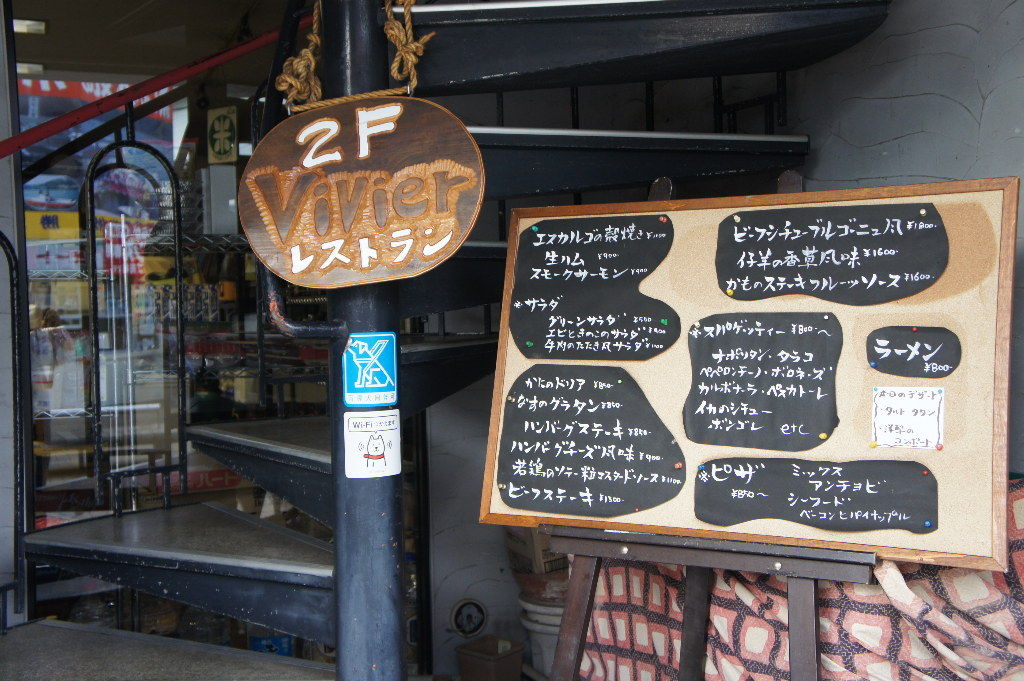 2F
Vivier
レストラン
Wi-Fi
エスカルゴの殻焼き
生ハム ¥900
スモークサーモン ¥900
※サラダ
グリーンサラダ ¥500
エビときのこのサラダ
牛肉のたたき風サラダ
かにのドリア ¥850-
なすのグラタン ¥850-
ハンバーグステーキ ¥850-
ハンバーグチーズ風味 ¥900-
若鶏のソテー粒マスタードソース ¥1100
ビーフステーキ ¥1300-
ビーフシチューブルゴーニュ風 ¥1800-
仔羊の香草風味 ¥1600-
かものステーキフルーツソース ¥1600-
※スパゲッティー ¥800~
ナポリタン・タラコ
ペペロンチーノ・ボロネーズ
カルボナーラ・ペスカトーレ
イカのシチュー
ボンゴレ etc
ラーメン
¥800-
本日のデザート
・タルトタタン
・洋梨の
コンポート
※ピザ
¥850~
ミックス
アンチョビ
シーフード
ベーコンとパイナップル